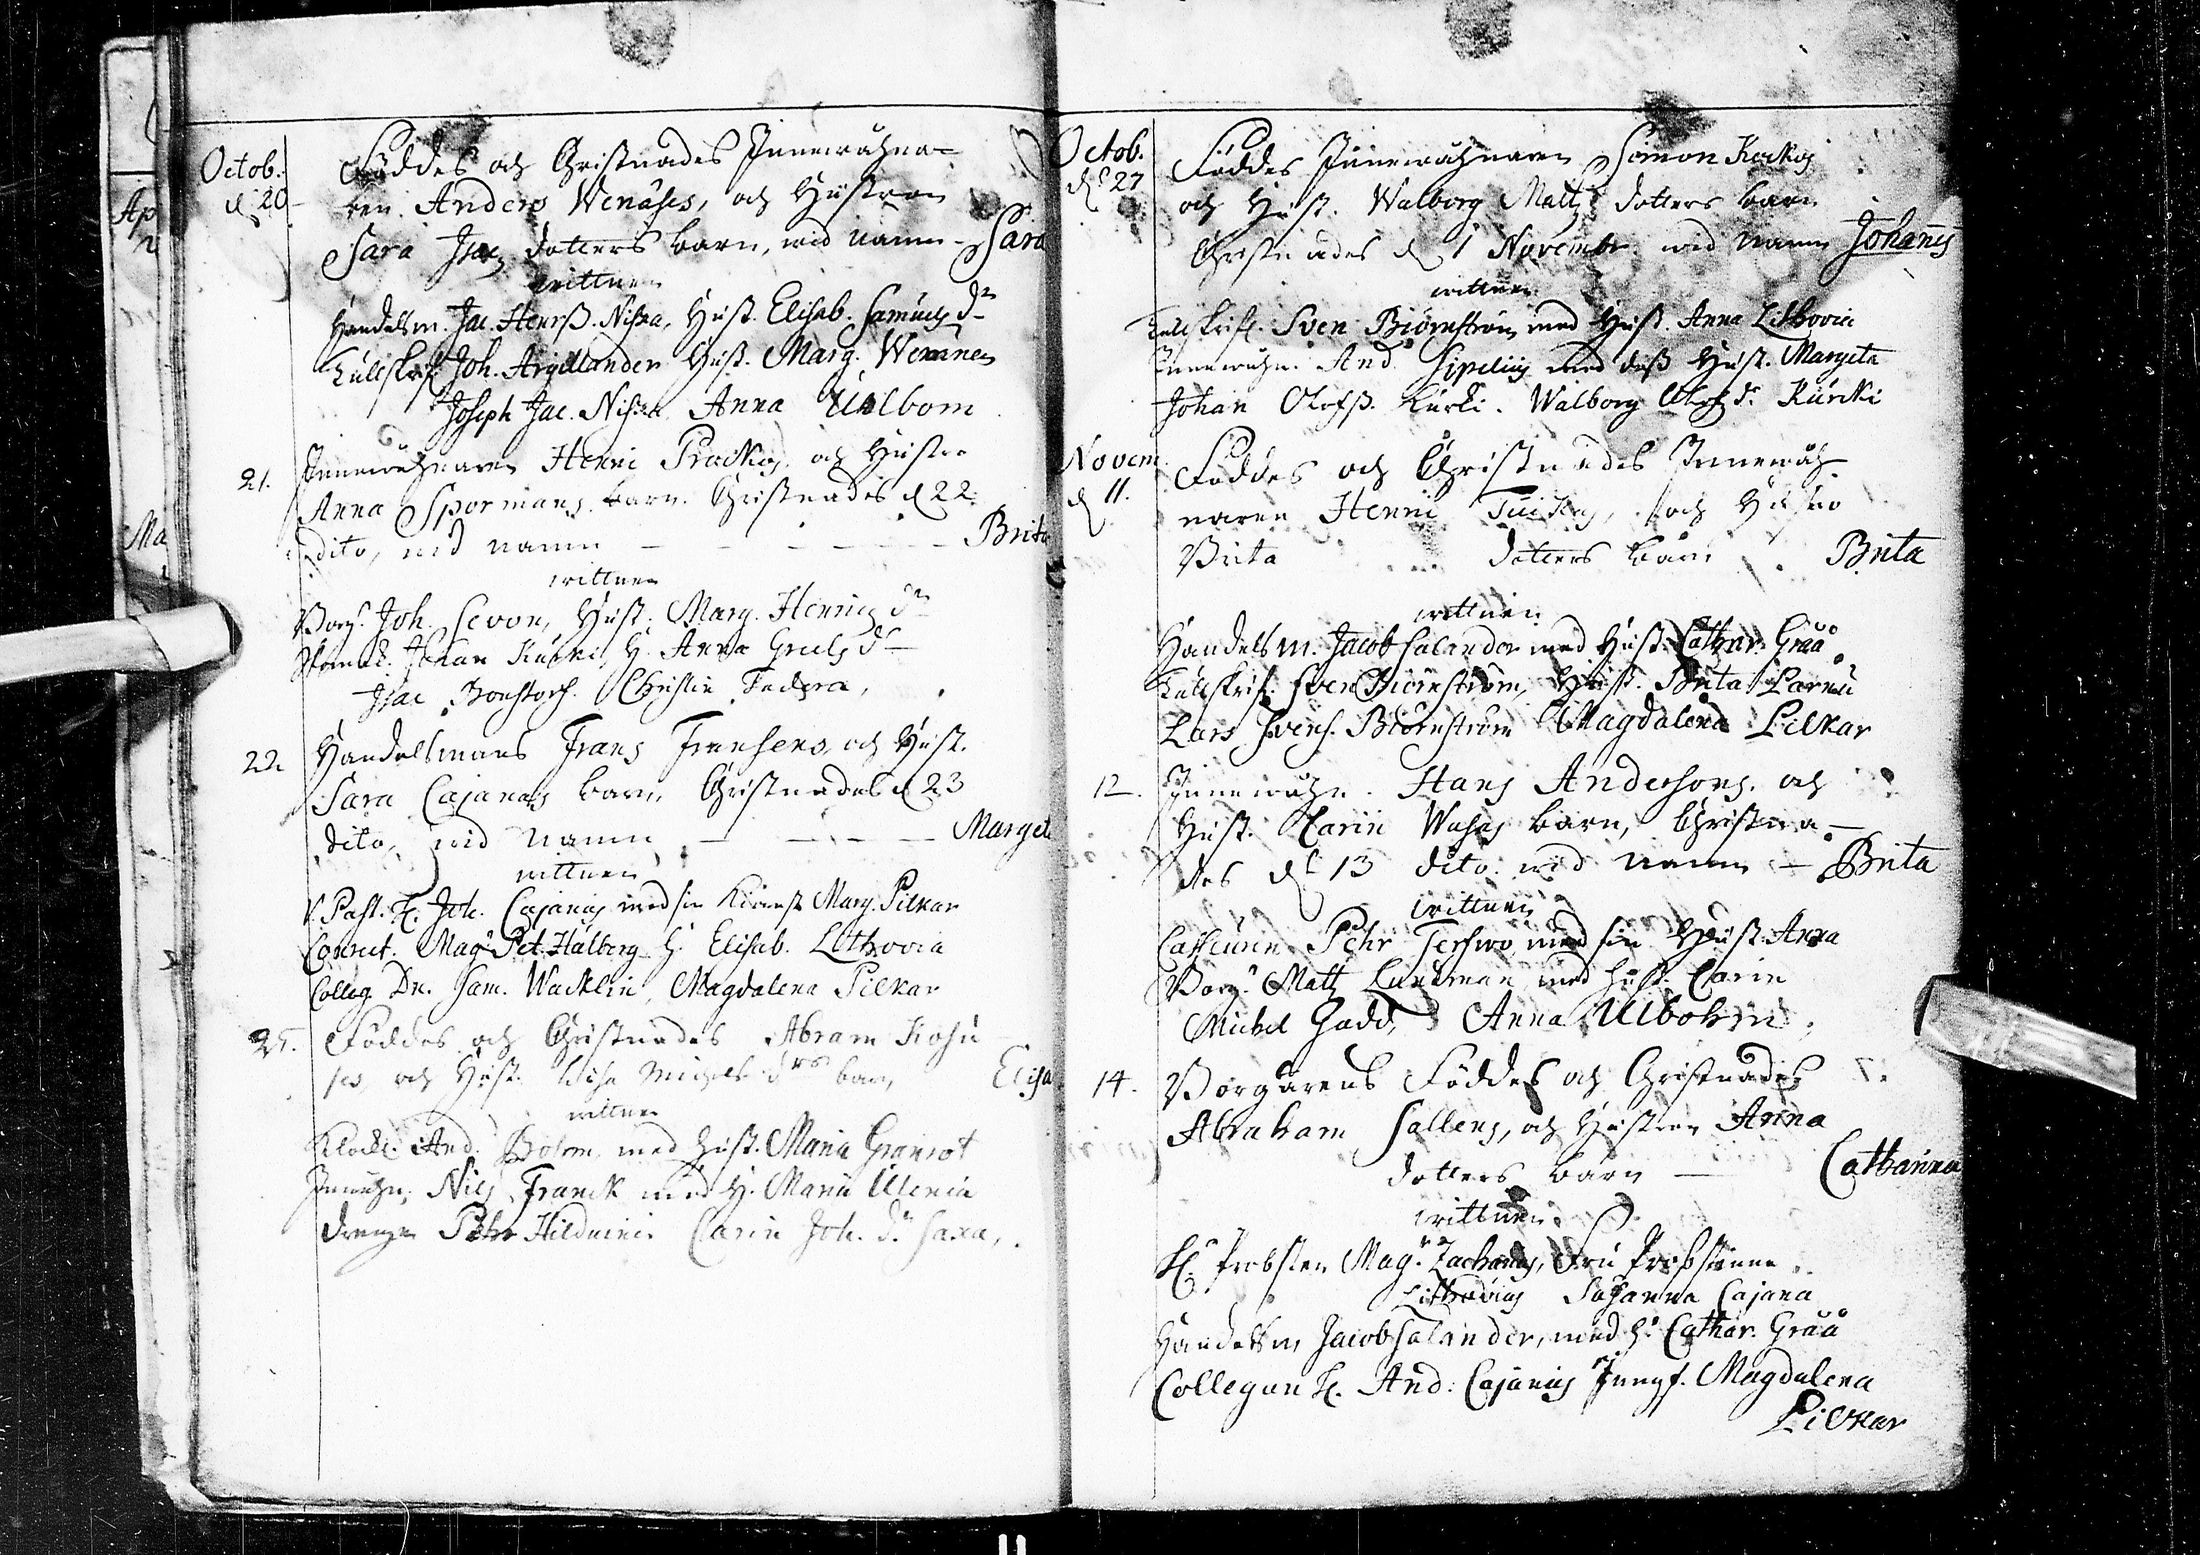 Octob.
d. 20
Föddes och Christnades Innewåhna-
ren Anders Wenäses, och Hustron
Sara Isacs dotters barn, wid namn - Sara
wittnen
Handelsm. Jac. Henrss. Niska, Hust. Elisab. Samuels dr
Tullskrif. Joh. Argillander Hust. Marg. Wenänen
Joseph Jac. Niska Anna Ulbom
21. Innewåhnaren Henric Prackos och Hustro
Anna Spormans barn Christnades d 22
dito, wid namn - - - - Brita
wittnen
Borg. Joh. Sevon, Hust. Marg. Henrics dr
Johan H. Anna Greels dr
Isac Christin
22 Handelsmans Frans Fransens och Hust.
Sara Cajanas barn, Christnades d 23
dito, wid namn - - - Marget
wittnen
V. Past. H. Joh. Cajanus med sin Kiärest Marg. Pilkar
Conrect. Magr Pet. Halberg H. Elisab. Lithovia
Colleg. Dn. Sam. Wacklin, Magdalena Pilkar
25. Föddes och Christnades Abram
och Hust. Lisa Michels drs barn Elisa
wittnen
Klock. And. med Hust. Maria Granrot
Innwåhn. Nils Franck med H. Maria Ulenia
drengen Pehr Carin Joh. dr Saxa,
Octob.
d. 27
Föddes Innewåhnaren Simon
och Hust. Walborg Matts dotters barn
Christnades d 1 Novembr. wid namn Johannes
wittnen
Tullskrif. Sven Biörnström med Hust. Anna Lithovia
Innewåhn. And. Sipelius med dess Hust. Margeta
Johan Olofss. Kurki. Walborg Olofs dr Kurcki
Novem
d 11.
Föddes och Christnades Innewåh
naren Henric och Hustro
Brita dotters barn Brita
wittnen
Handelsm. Jacob Salander med Hust. Cathar. Gråå
Tullskrif. Sven Biörnström, Hust. Brita
Lars Svens. Biörnström Magdalena Pilkar
12. Innewåhn. Hans Andersons och
Hust. Carin barn, Christna-
des d 13 dito wid namn - Brita
wittnen
Pehr med sin Hust. Anna
Borg. Matts Lundman med Hust. Carin
Michel Gadd, Anna Ulbohm
14. Borgarens Föddes och Christnades
Abraham Sallens, och Hustron Anna
dotters barn - Catharina
wittnen
H. Probsten Magr Zacharias, Fru Probstinna
Lithovius Susanna Cajana
Handelsm Jacob Salander, med H. Cathar. Gråå
Collegan H. And: Cajanus Jungf. Magdalena
Pilkar
Ap
Ma